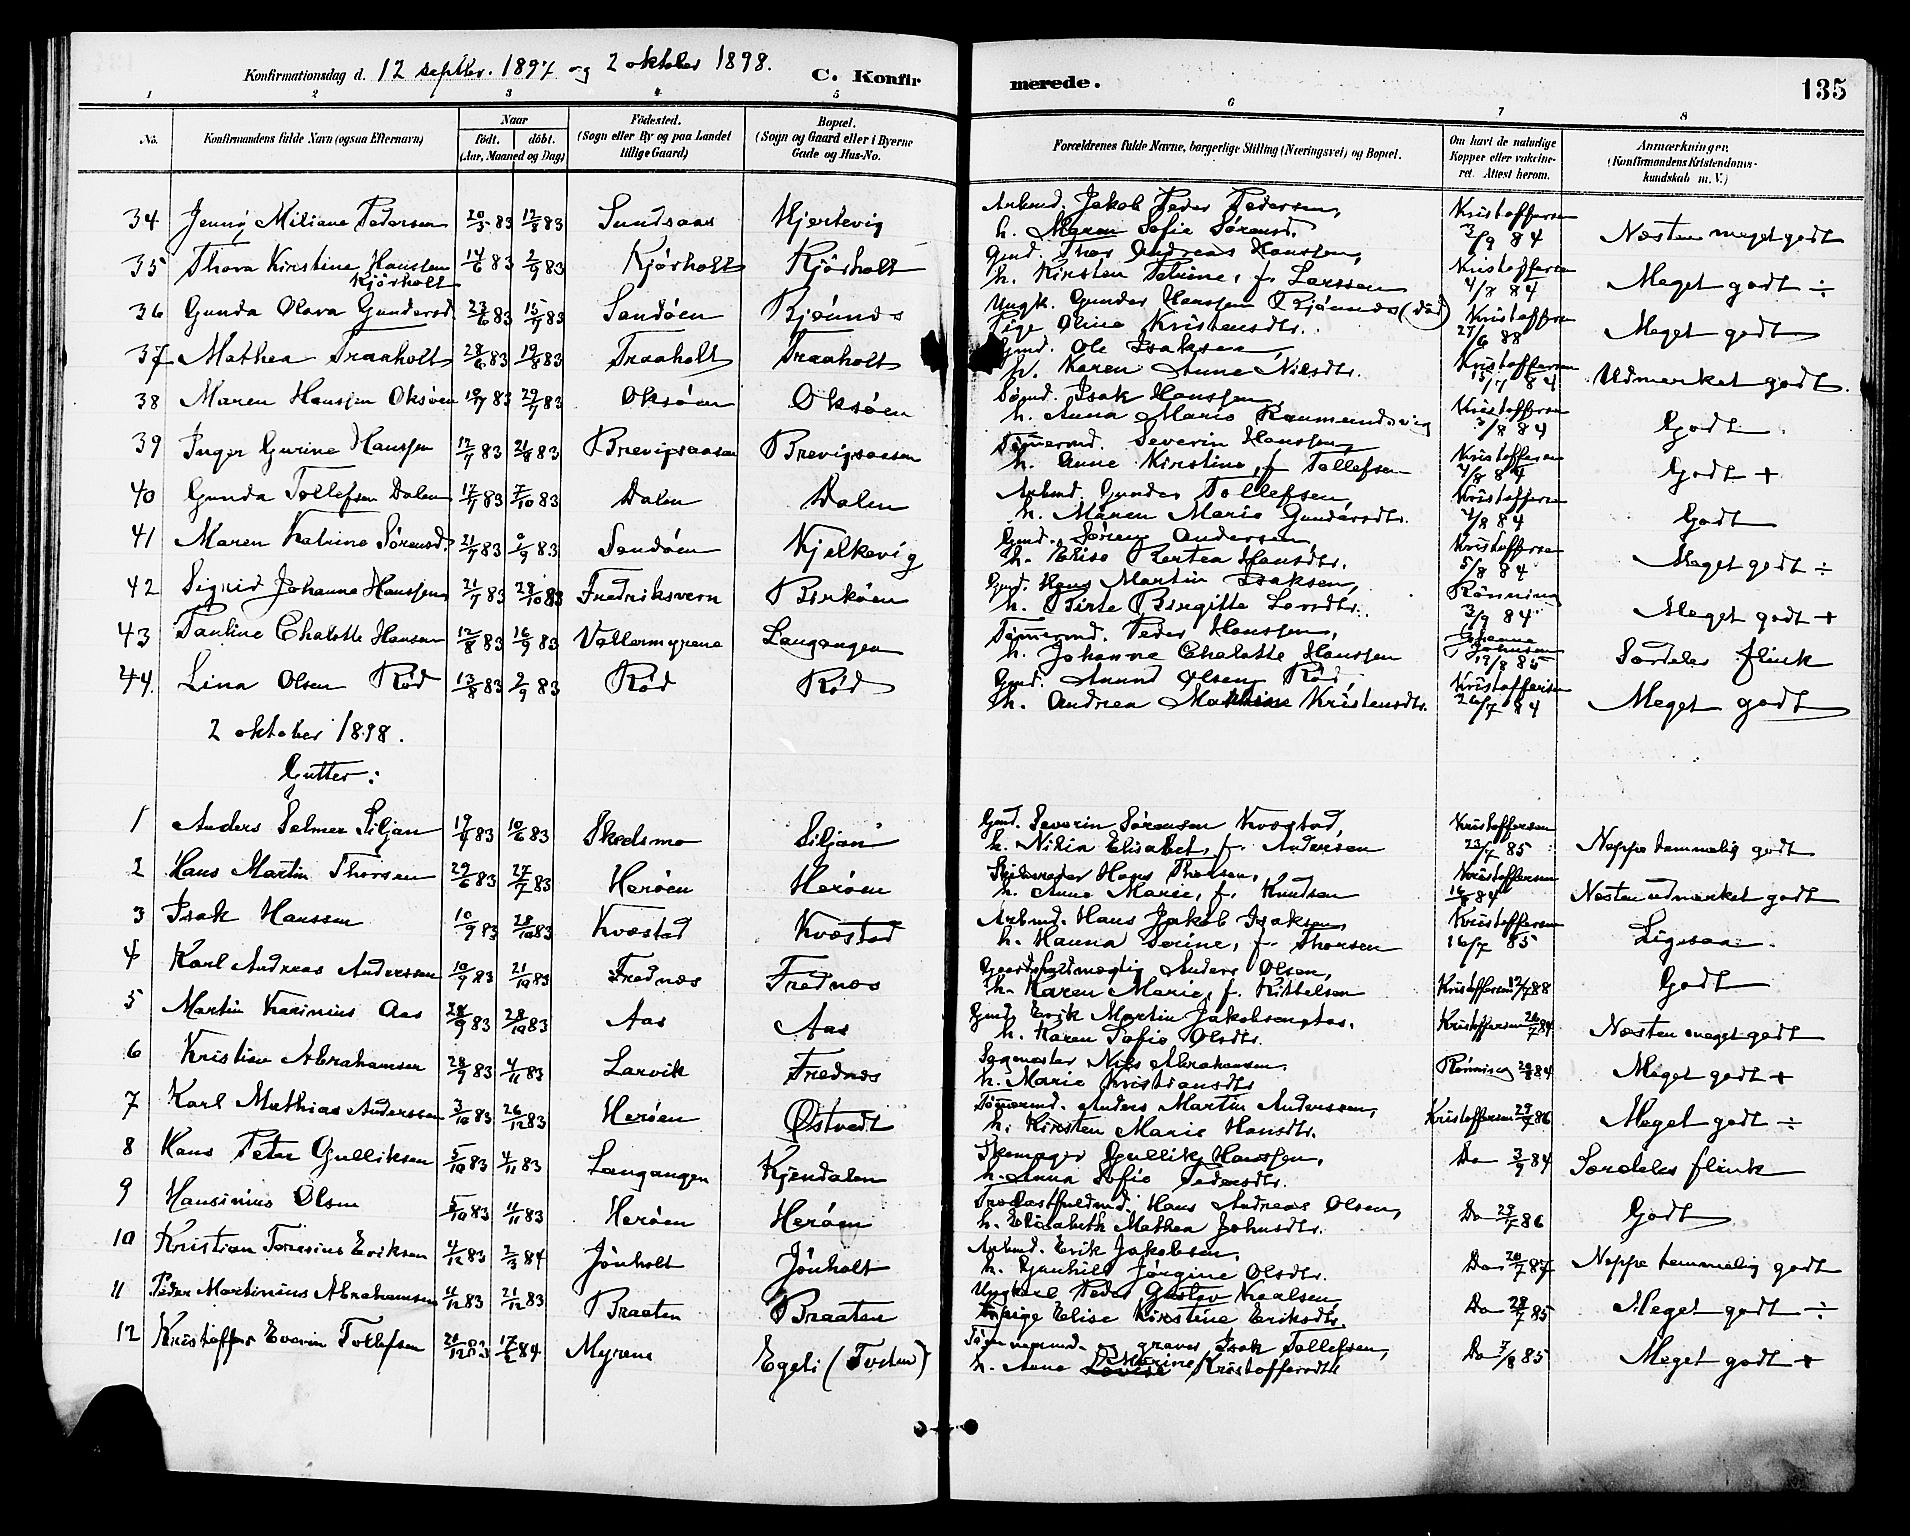 Konfirmationsdag d. 12 septbr. 1897 og 2 oktober 1898. C. Konfirmerede. 135
1 2 3 4 5 6 7 8
No. Konfirmandens fulde Navn (ogsaa Efternavn) Naar født. døbt. (Aar, Maaned og Dag) Fødested. (Sogn eller By og paa Landet tillige Gaard) Bopæl. (Sogn og Gaard eller i Byerne Gade og Hus-No. Forældrenes fulde Navne, borgerlige Stilling (Næringsvei) og Bopæl. Om havt de naturlige Kopper eller vakcineret. Attest herom. Anmærkninger. (Konfirmandens Kristendomskundskab m. V.)
34 Jenny Miliane Pedersen 20/3 83 12/8 83 Sundsaas Hjertevig Arbmd. Jakob Peder Pedersen, Kristoffersen Næsten meget godt
h. Maren Sofie Sørensd. 3/9 84
35 Thora Kirstine Hanssen Kjørholt 14/6 83 2/9 83 Kjørholt Kjørholt Gmd. Thor Andreas Hanssen, Kristoffersen Meget godt ÷
h. Kirsten Petrine, f. Larssen 4/8 84
36 Gunda Olava Gundersd. 23/6 83 15/7 83 Sandøen Bjønnes Ungk. Gunder Hanssen Bjønnes (død) Kristoffersen Meget godt
Pige Oline Kristensdtr. 27/6 88
37 Mathea Traaholt 28/6 83 19/8 83 Traaholt Traaholt Gmd. Ole Isaksen, Kristoffersen Udmerket godt.
h. Karen Anne Nilsdtr. 15/7 84
38 Maren Hansjen Oksøen 10/7 83 29/7 83 Oksøen Oksøen Sømd. Isak Hanssen, Kristoffersen Godt
h. Anna Marie Raumundsvig 5/8 84
39 Inger Gurine Hanssen 12/7 83 26/8 83 Brevigsaasen Brevigsaasen Tømmermd. Severin Hanssen, Kristoffersen Godt +
h. Anne Kirstine, f. Tollefsen 4/8 84
40 Gunda Tollefsen Dalen 17/7 83 7/10 83 Dalen Dalen Arbmd. Gunder Tollefsen, Kristoffersen Godt
h. Maren Marie Gundersdtr. 4/8 84
41 Maren Katrine Sørensd. 21/7 83 2/9 83 Sandøen Kjelkevig Gmd. Sørens Andersen, Kristoffersen Meget godt ÷
h. Elise Bertea Hansdtr. 5/8 84
42 Sigrid Johanne Hanssen 21/7 83 28/10 83 Fredriksvern Birkøen Gmd. Hans Martin Isaksen, Rønning Meget godt +
h. Birte Birgitte Larsdtr. 3/9 84
43 Pauline Chalotte Hansen 12/8 83 16/9 83 Vallermyrene Langangen Tømmermd. Peder Hanssen, Johanne Johnsen Særdeles flink
h. Johanne Chalotte Hanssen 12/8 85
44. Lina Olsen Rød 13/8 83 2/9 83 Rød Rød Gmd. Anund Olsen Rød, Kristoffersen Meget godt
h. Andrea Mathine Kristensdtr. 26/7 84
2 oktober 1898.
Gutter:
1 Anders Selmer Siljan 19/4 83 10/6 83 Skedsmo Siljan Gmd. Severin Sørensen Kvæstad, Kristoffersen Neppe temmelig godt
h. Nikia Elisabet, f. Andersen 23/7 85
2 Hans Martin Thorsen 29/6 83 27/7 83 Herøen Herøen Skibsreder Hans Thorsen, Kristoffersen Næsten udmerket godt
h. Anne Marie, f. Knudsen 16/8 84
3 Isak Hanssen 10/9 83 28/10 83 Kvæstad Kvæstad Arbmd. Hans Jakob Isaksen, Kristoffersen Ligesaa.
h. Hanna Serine, f. Thorsen 16/7 85
4 Karl Andreas Anderssen 10/9 83 21/10 83 Frednæs Frednæs Gaardsfuldmægtig Anders Olsen, Godt
h. Karen Marie, f. Kittelsen Kristoffersen 12/7 88
5 Martin Karinius Aas 24/9 83 28/10 83 Aas Aas Gmd. Erik Martin Jakobsen Aas. Kristoffersen 26/7 84 Næsten meget godt
h. Karen Sofie Olsdtr.
6 Kristian Abrahamsen 28/9 83 4/11 83 Larvik Frednæs Sagmester Nils Abrahamsen. Rønning 29/8 84 Meget godt +
h. Marie Kristiansdtr
7 Karl Mathias Anderssen 3/10 83 26/12 83 Herøen Østvedt Tømmermd. Anders Martin Anderssen, Kristoffersen 29/7 86 Meget godt ÷
h. Kirsten Marie Hansdtr.
8 Hans Peter Gulliksen 5/10 83 4/11 83 Langangen Kjendalen Skomager Gullik Hanssen, Do 3/9 84 Særdeles flink
h. Anna Sofie Pedersdtr.
9 Hansinius Olsen 5/10 83 11/11 83 Herøen Herøen Hans Andreas Olsen, Do 29/7 86 Godt
h. Elisabeth Mathea Johnsdtr.
10 Kristian Teresius Eriksen 4/12 83 2/3 84 Jønholt Jønholt Arbmd. Erik Jakobsen, Do 20/7 87 Neppe temmelig godt
h. Gunhild Jørgine Olsdtr.
11 Peder Martinius Abrahamsen 11/12 83 21/12 83 Braaten Braaten Ungkarl Peder Gustav Karlsen, Do 28/7 85 Meget godt ÷
Pige Elise Kirstine Eriksdtr.
12 Kristoffer Everin Tollefsen 21/12 83 17/2 84 Myrene Egeli (Tveten) Tømmermd. og graver Isak Tollefsen, Do 7/8 85 Meget godt +
h. Anne Marine Kristoffersdtr